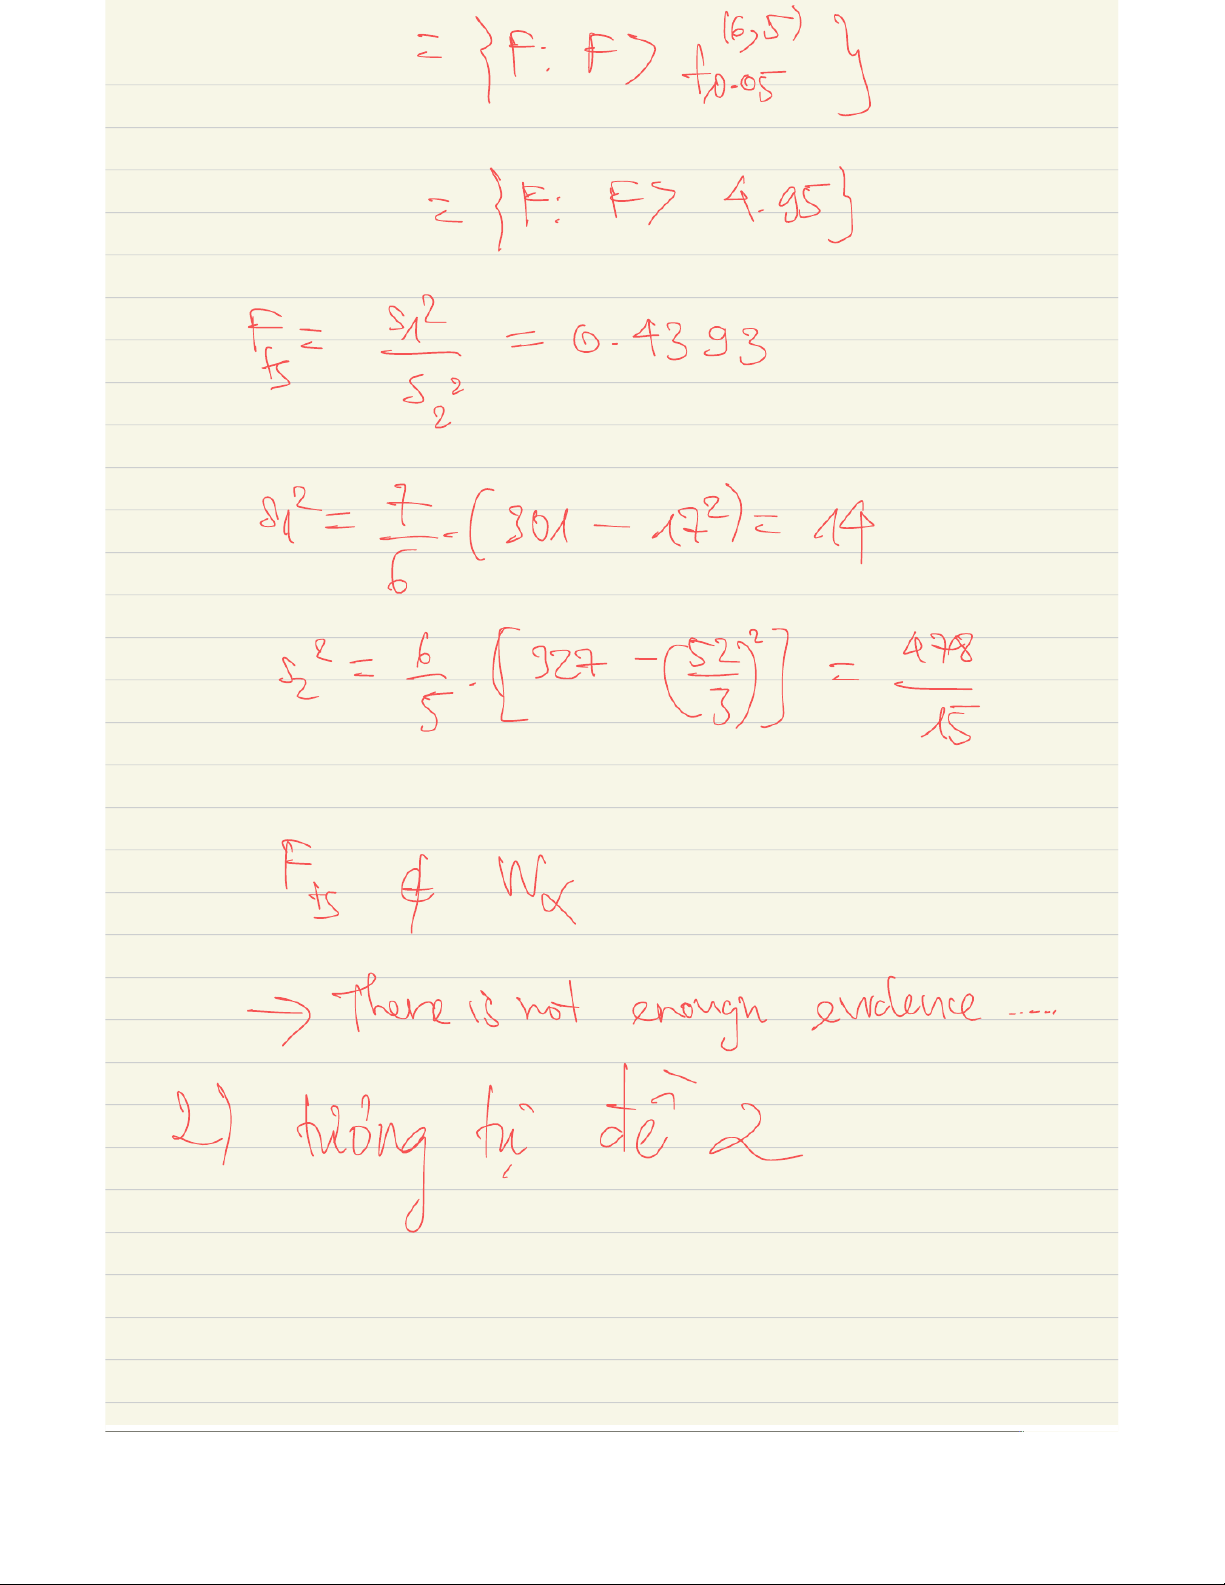 = {F: F > f_{0.05}^{(6,5)}}
= {F: F > 4.95}
F_{ts} = s_1^2 / s_2^2 = 0.4393
s_1^2 = 7/6 . (301 - 17^2) = 14
s_2^2 = 6/5 . [327 - (52/3)^2] = 478/15
F_{ts} ∉ W_α
→ There is not enough evidence .....
2) tương tự đề 2